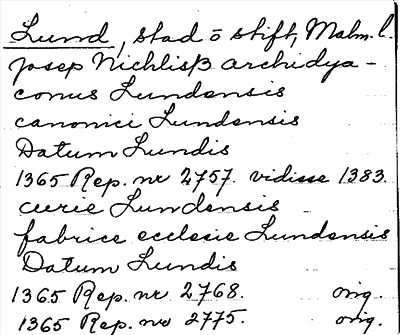 Lund, stad o stift, Malm. l.
Josep Nichlisß archidya-
conus Lundensis
canonici Lundensis
Datum Lundis
1365 Rep. nr 2757. vidisse 1383.
curie Lundensis -
fabrice ecclesie Lundensis
Datum Lundis
1365 Rep. nr 2768. orig.
1365 Rep. no 2775. orig.